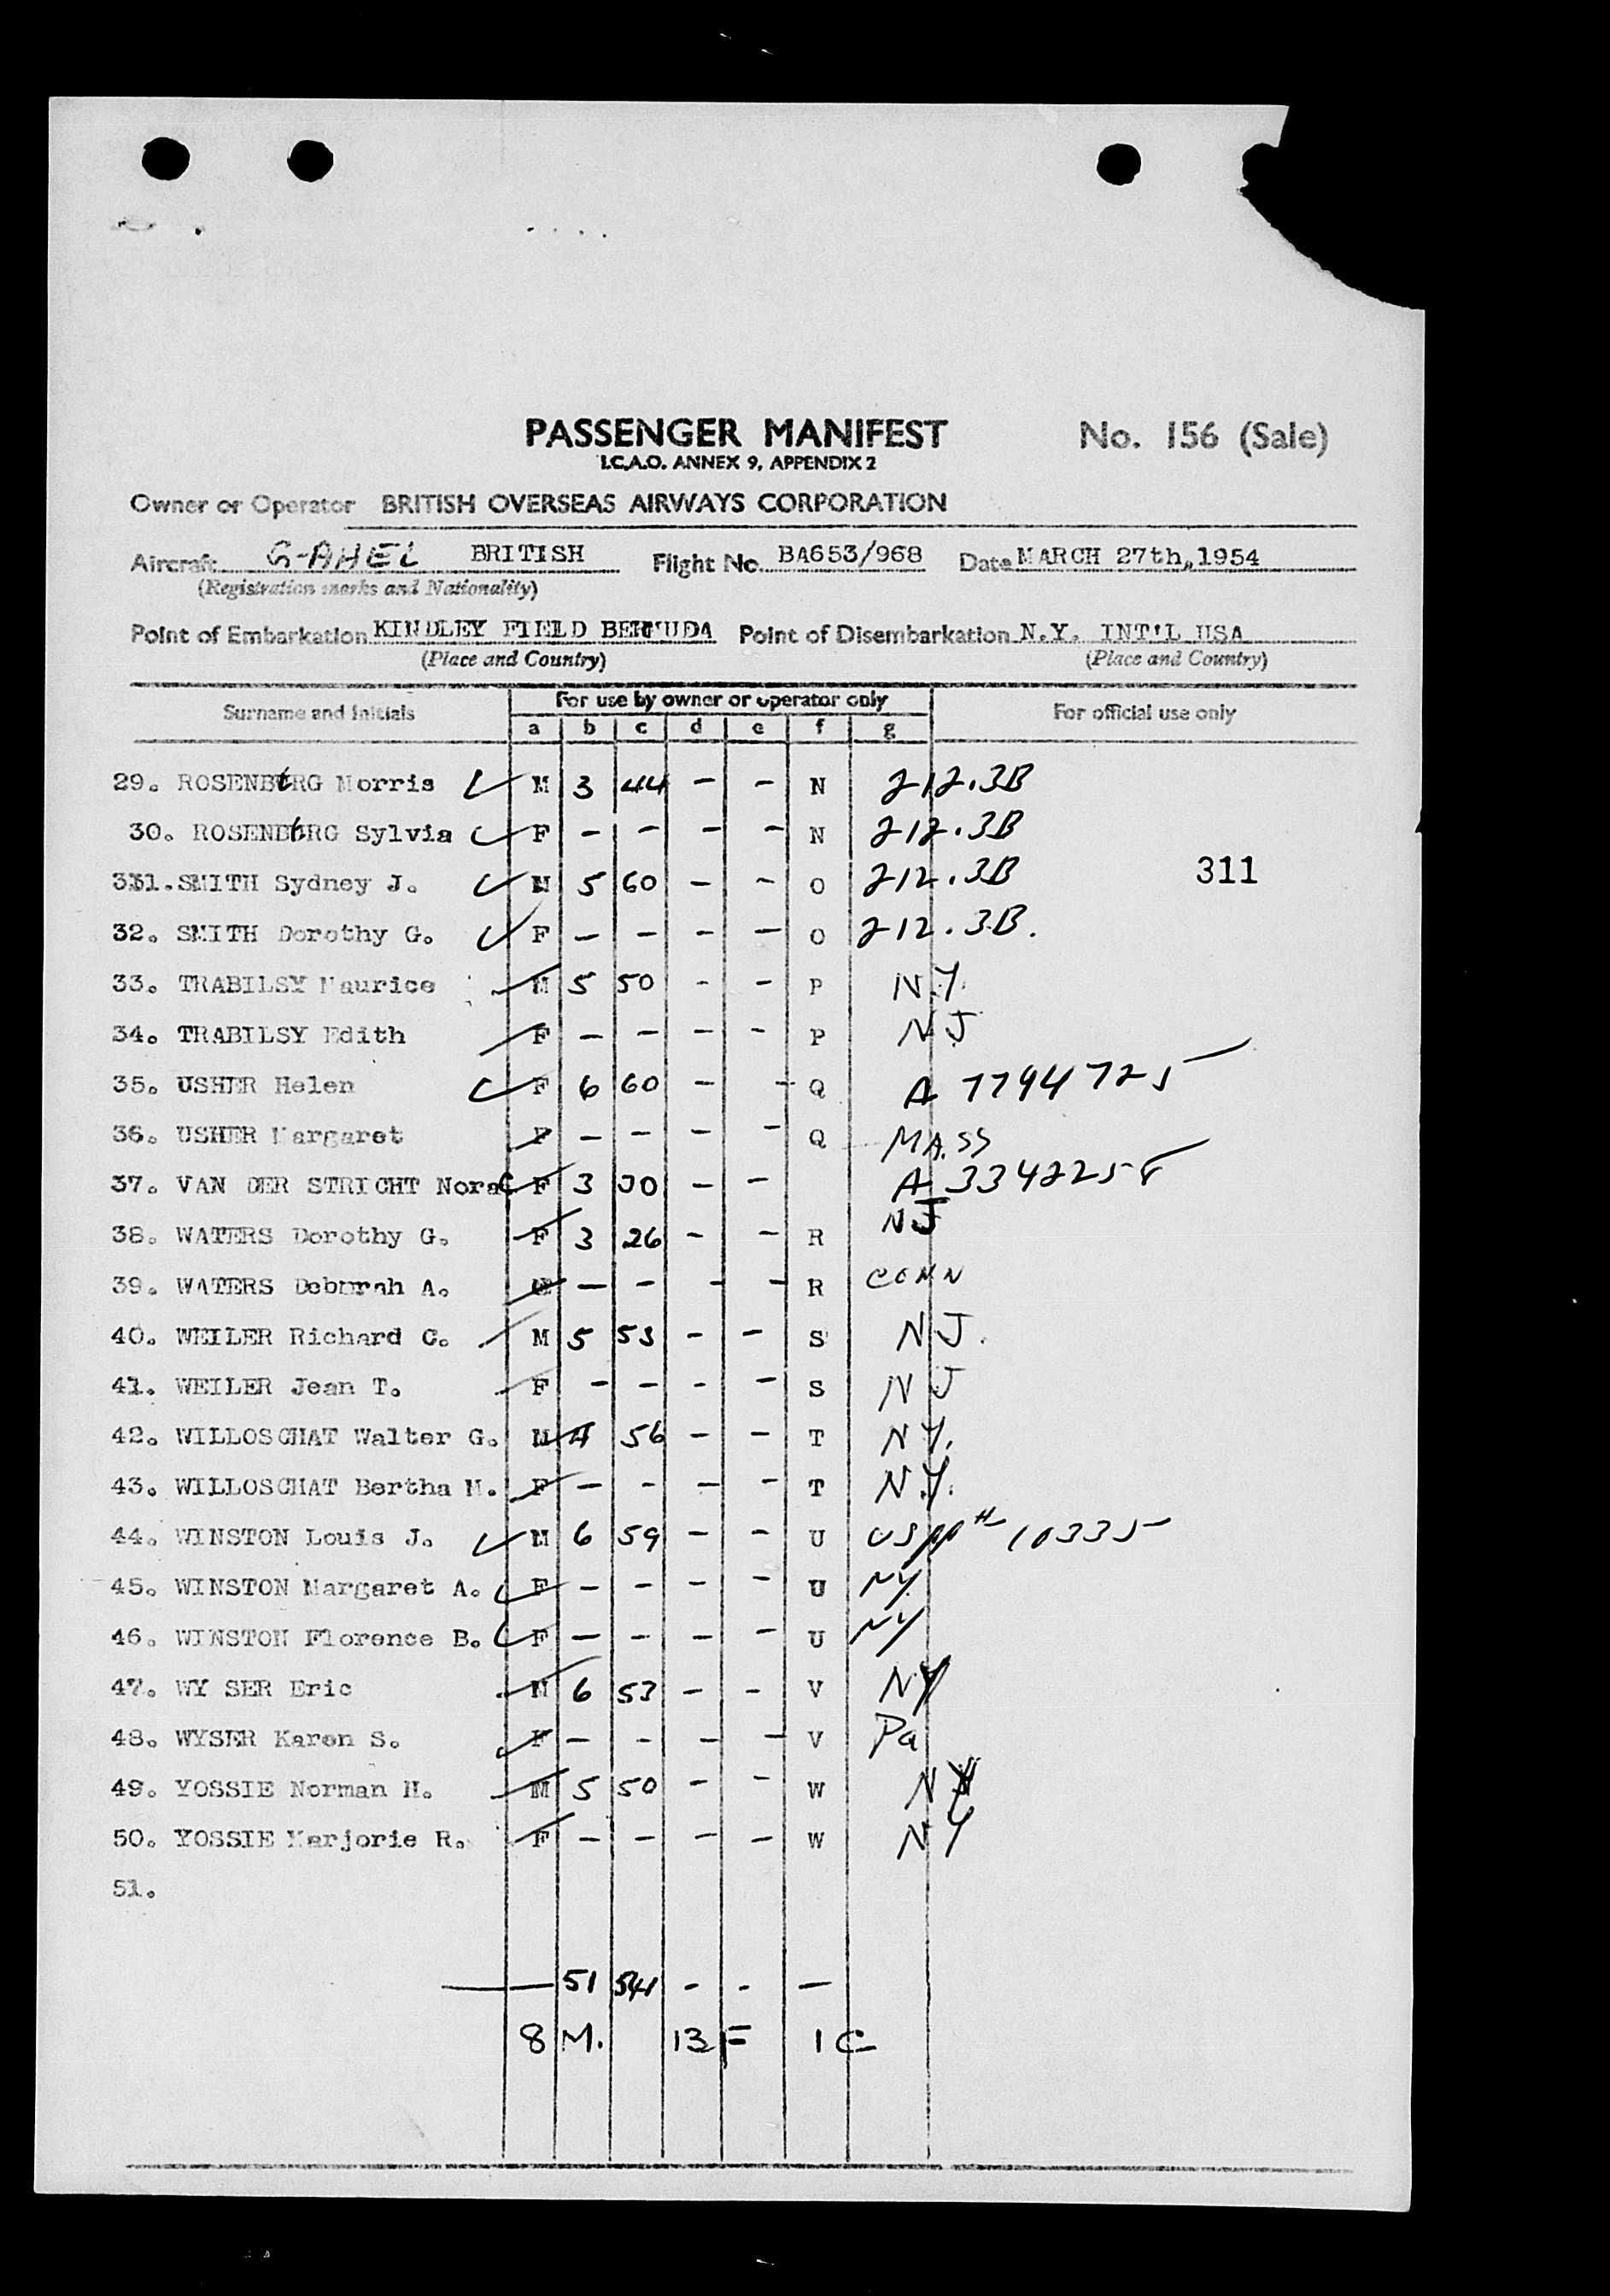 PASSENGER MANIFEST No. 156 (Sale)
I.C.A.O. ANNEX 9, APPENDIX 2
Owner or Operator BRITISH OVERSEAS AIRWAYS CORPORATION
Aircraft G-AHEL BRITISH Flight No. BA653/968 Date MARCH 27th, 1954
(Registration marks and Nationality)
Point of Embarkation KINDLEY FIELD BERMUDA Point of Disembarkation N.Y. INT'L USA
(Place and Country) (Place and Country)
For use by owner or operator only
Surname and initials For official use only
a b c d e f g
29. ROSENBERG Morris M 3 44 - - N 212.3B
30. ROSENBERG Sylvia F - - - - N 212.3B
331. SMITH Sydney J. M 5 60 - - O 212.3B 311
32. SMITH Dorothy G. F - - - - O 212.3B.
33. TRABILSY Maurice M 5 50 - - P N.Y.
34. TRABILSY Edith F - - - - P NJ
35. USHER Helen F 6 60 - - Q A 7794725
36. USHER Margaret F - - - - Q MASS
37. VAN DER STRICHT Nora F 3 30 - - A 3342258
38. WATERS Dorothy G. F 3 26 - - R NJ
39. WATERS Deborah A. - - - - R CONN
40. WEILER Richard C. M 5 53 - - S NJ.
41. WEILER Jean T. F - - - - S NJ
42. WILLOSCHAT Walter G. M 4 56 - - T NY.
43. WILLOSCHAT Bertha M. F - - - - T N.Y.
44. WINSTON Louis J. M 6 59 - - U US pp# 10335
45. WINSTON Margaret A. F - - - - U NY
46. WINSTON Florence B. F - - - - U NY
47. WY SER Eric M 6 53 - - V NY
48. WYSER Karen S. F - - - - V Pa
49. YOSSIE Norman H. M 5 50 - - W NY
50. YOSSIE Marjorie R. F - - - - W NY
51.
- 51 541 - - -
8 M. 13 F 1 C